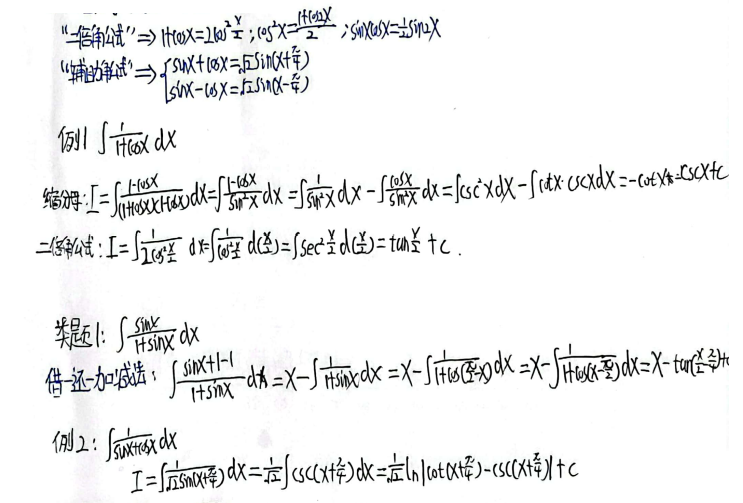 "二倍角公式" ⇒ 1+cosx=2cos²x/2 ; cos²x=(1+cos2x)/2 ; sinxcosx=1/2sin2x
"辅助角公式" ⇒ { sinx+cosx=√2sin(x+π/4)
sinx-cosx=√2sin(x-π/4)
例1 ∫1/(1+cosx) dx
缩分母: I=∫(1-cosx)/((1+cosx)(1-cosx))dx=∫(1-cosx)/sin²x dx=∫1/sin²x dx-∫cosx/sin²x dx=∫csc²xdx-∫cotx·cscxdx=-cotx+cscx+c
二倍角公式: I=∫1/(2cos²x/2) dx=∫1/(cos²x/2) d(x/2)=∫sec²x/2 d(x/2)=tanx/2+c.
类题1: ∫sinx/(1+sinx) dx
借一还一加减法: ∫(sinx+1-1)/(1+sinx) dx=x-∫1/(1+sinx)dx=x-∫1/(1+cos(π/2-x))dx=x-∫1/(1+cos(x-π/2))dx=x-tan(x/2-π/4)+c
例2: ∫1/(sinx+cosx)dx
I=∫1/(√2sin(x+π/4))dx=1/√2∫csc(x+π/4)dx=1/√2ln|cot(x+π/4)-csc(x+π/4)|+c